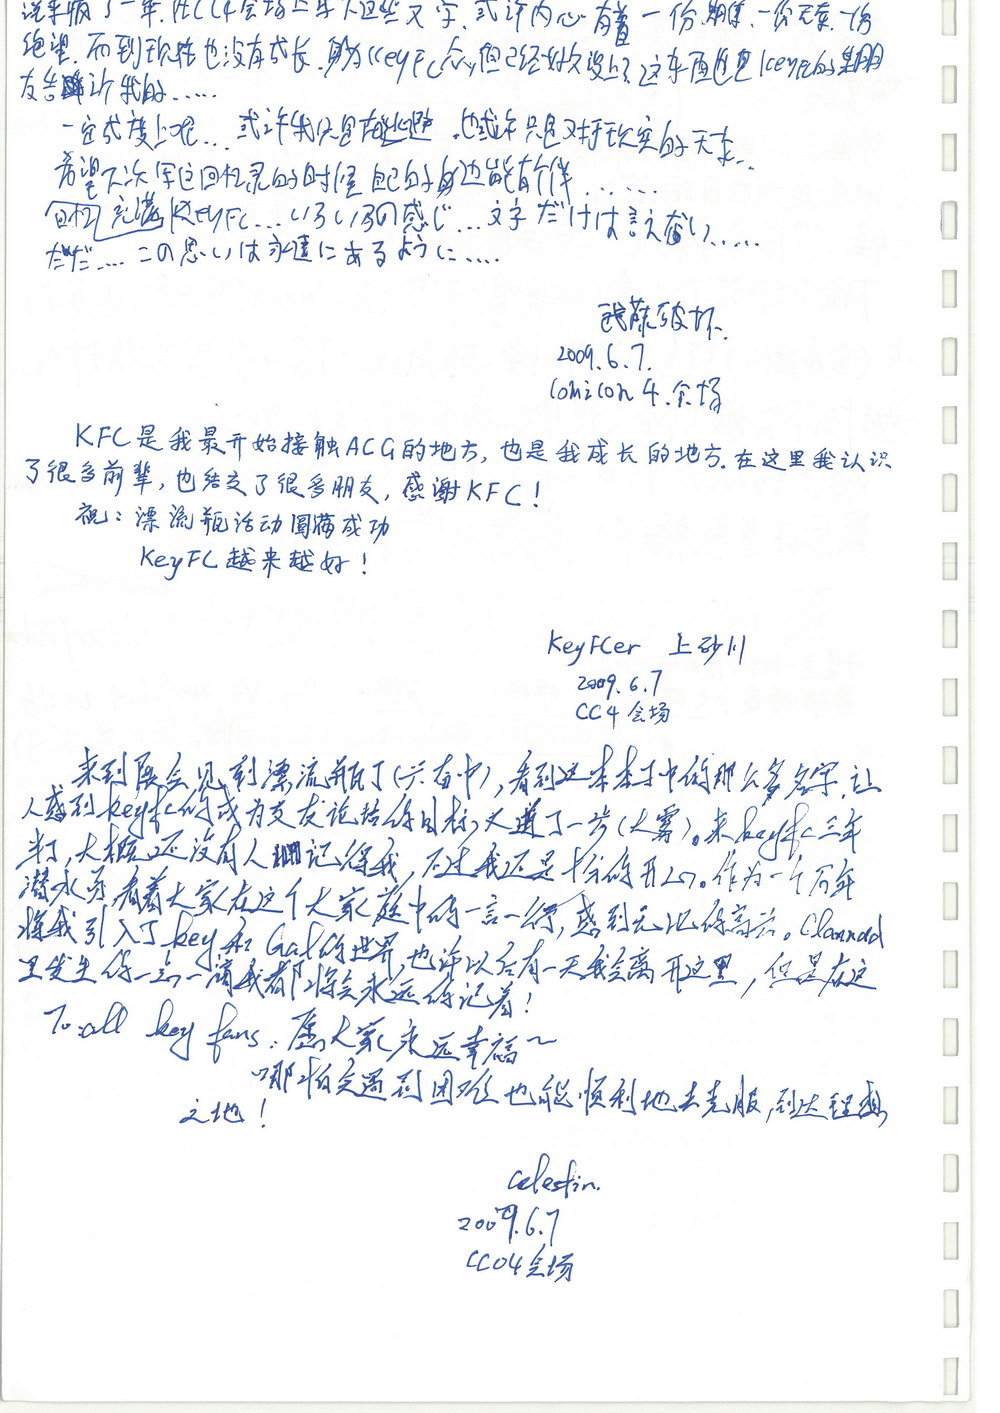 在CC4会场上写下这些文字,或许内心有着一份期待,一份无奈,一份
绝望.而到现在也没有成长.身为KeyFC众,但已经好久没上了,这东西也是KeyFC的朋
友告诉我的......
一定式度上呢... 或许我只是在逃避.也或许只是对于现实的无奈..
希望下次写这回忆录的时候自己的身边能有个伴......
回忆充满KEYFC...いろいろの感じ...文字だけは言えない.....
ただ....この思いは永遠にあるように.....
破坏.
2009.6.7.
Comicon 4.会场
KFC是我最开始接触ACG的地方,也是我成长的地方.在这里我认识
了很多前辈,也结交了很多朋友,感谢KFC!
祝:漂流瓶活动圆满成功
KeyFC越来越好!
KeyFCer 上砂川
2009.6.7
CC4会场
来到展会见到漂流瓶了(兴奋中),看到这本本子中的那么多名字,让
人感到keyfc的成为交友论坛的目标,又进了一步(大雾)。来keyfc三年
半了,大概还没有人记得我,不过我还是十分的开心。作为一个万年
潜水员,看着大家在这个大家庭中的一言一行,感到无比的高兴。Clannad
将我引入了key和Gal的世界,也许以后有一天我会离开这里,但是在这
里发生的一点一滴我都将会永远的记着!
To all key fans:愿大家永远幸福~
哪怕交遇到困难也能顺利地去克服,到达理想
之地!
Celestin.
2009.6.7
CC04会场